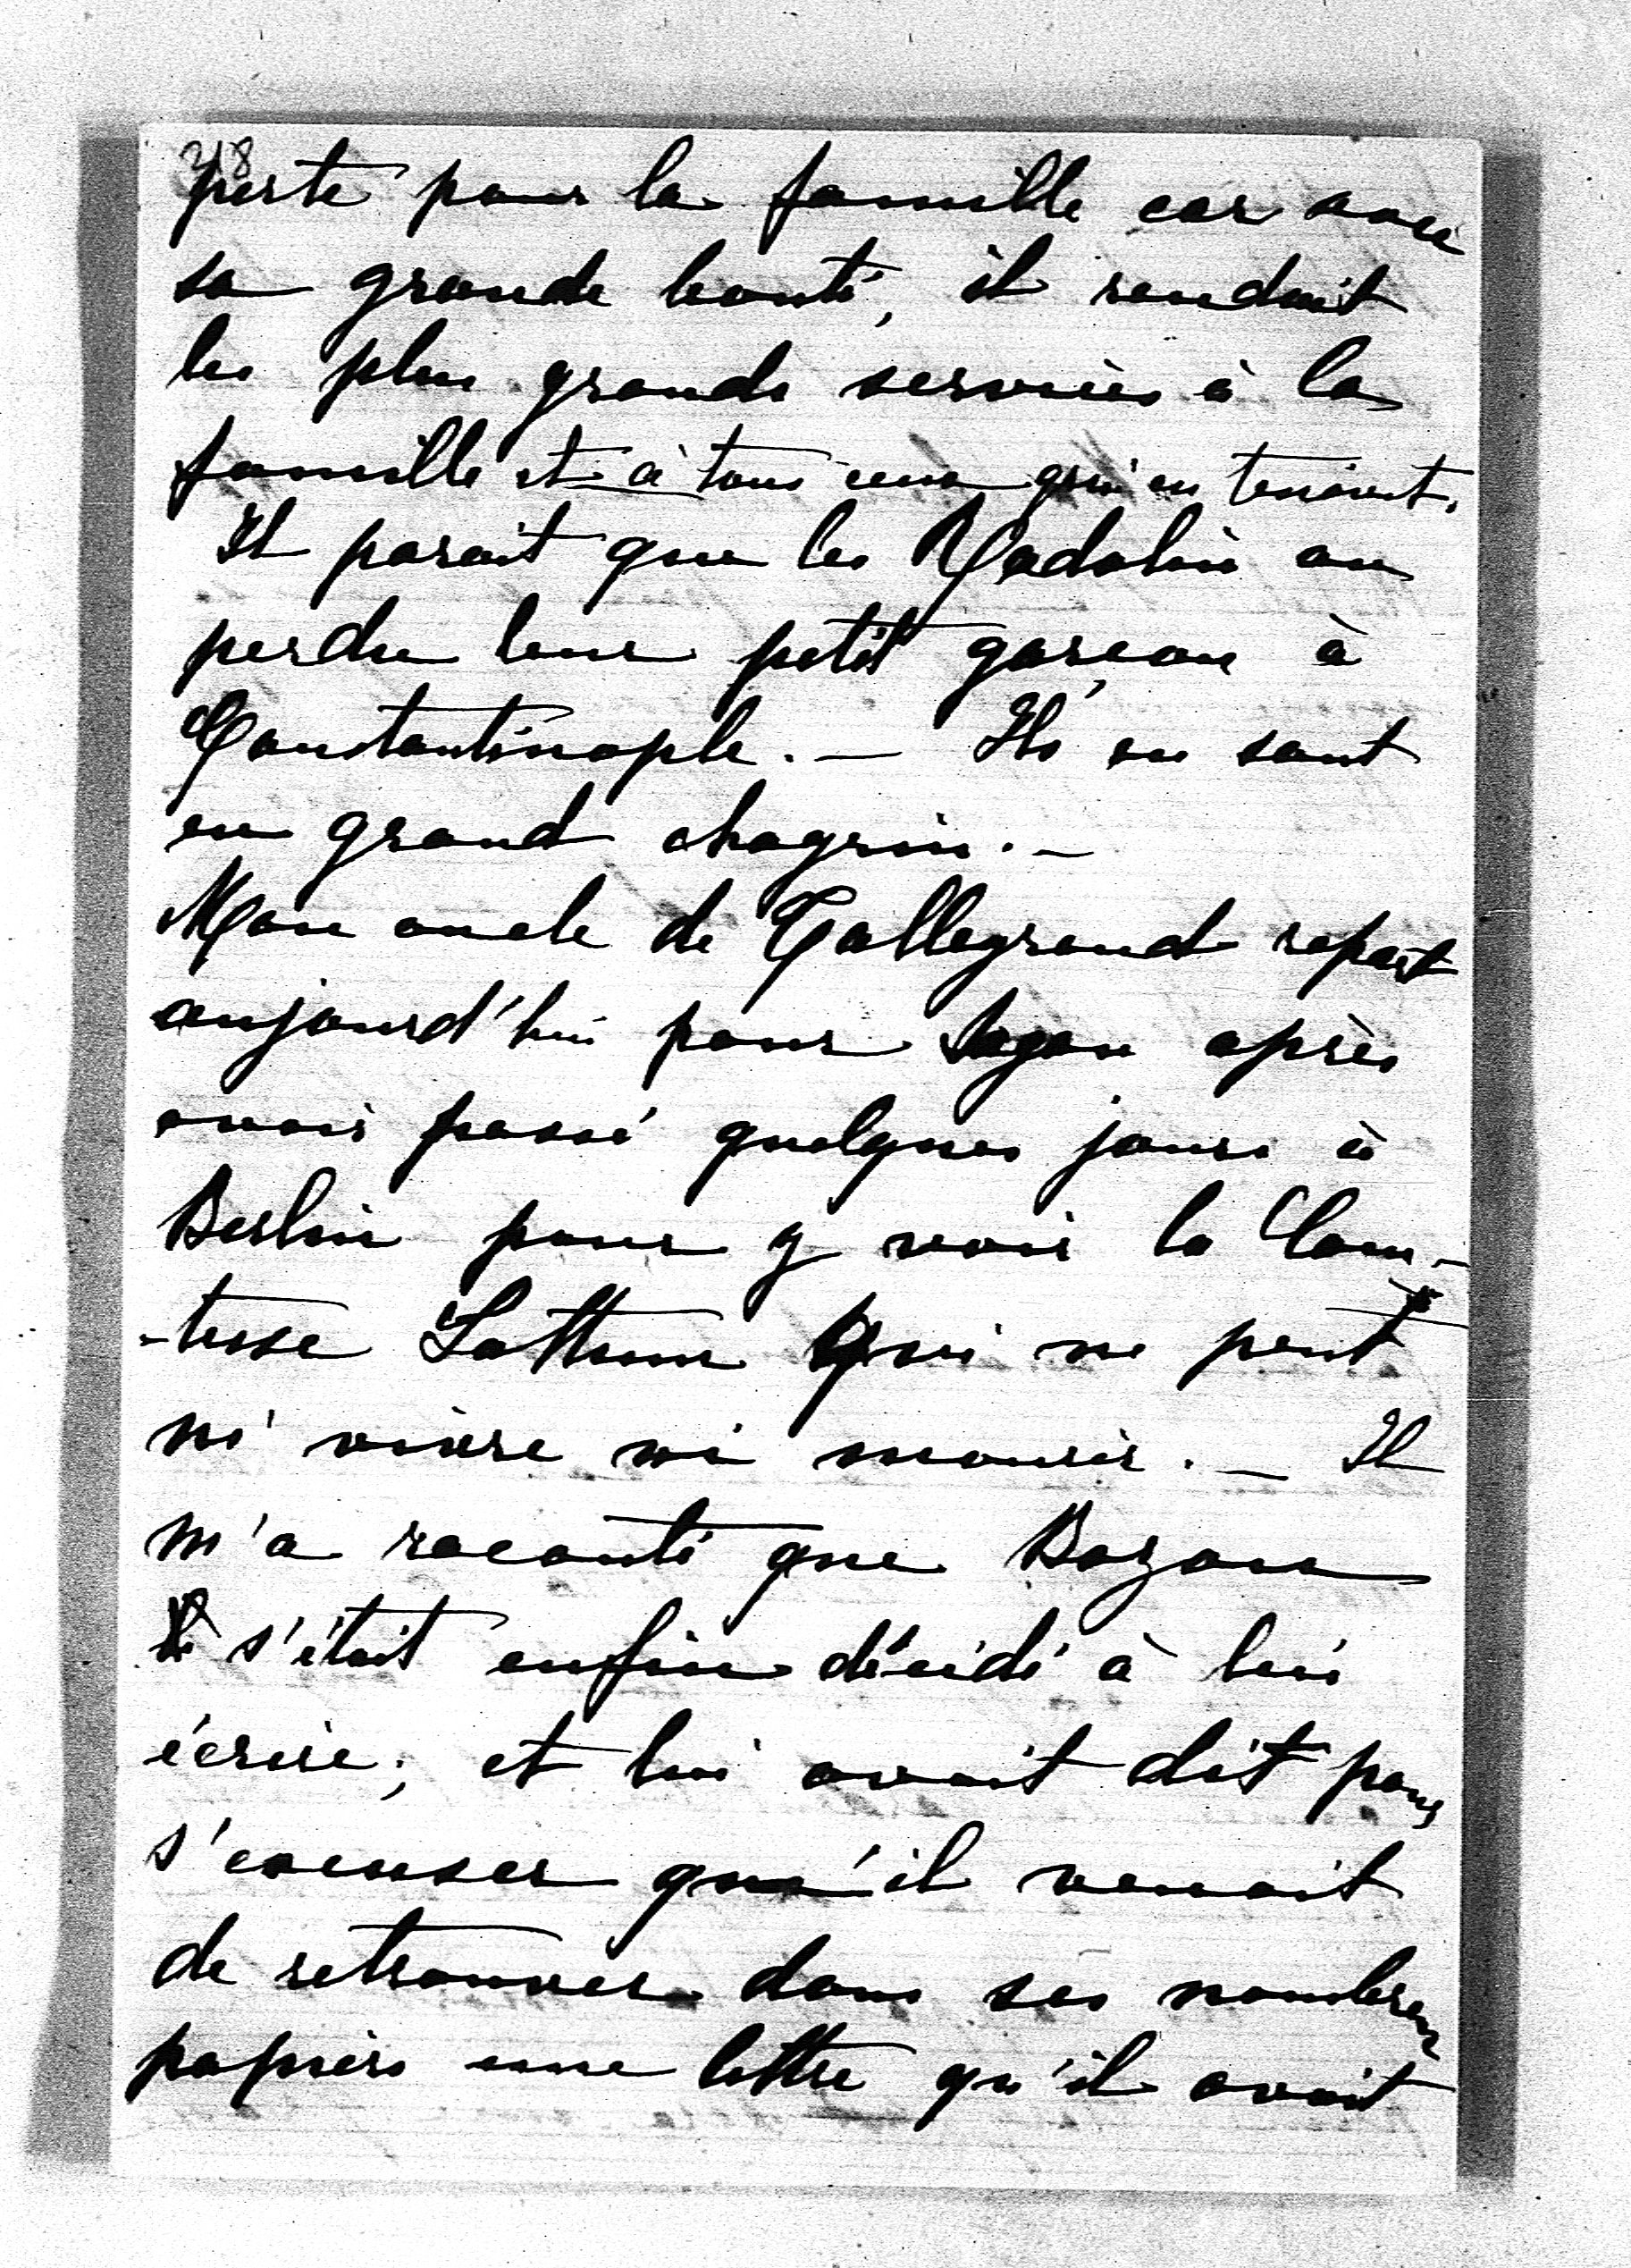 318
perte pour la famille car avec
sa grande bonté, il rendait
les plus grands services à la
famille et à tous ceux qui en tenaient.
Il parait que les Radolin on
perdu leur petit garçon à
Constantinople. — Ils en sont
en grand chagrin. —
Mon oncle de Talleyrand repart
aujourd'hui pour Sagan après
avoir passé quelques jours à
Berlin pour y voir la Com-
-tesse Lottum qui ne peut
ni vivre ni mourir. — Il
m'a raconté que Bozon
s'était enfin décidé à lui
écrire; et lui avait dit pour
s'excuser qu'il venait
de retrouver dans ses nombreux
papiers une lettre qu'il avait